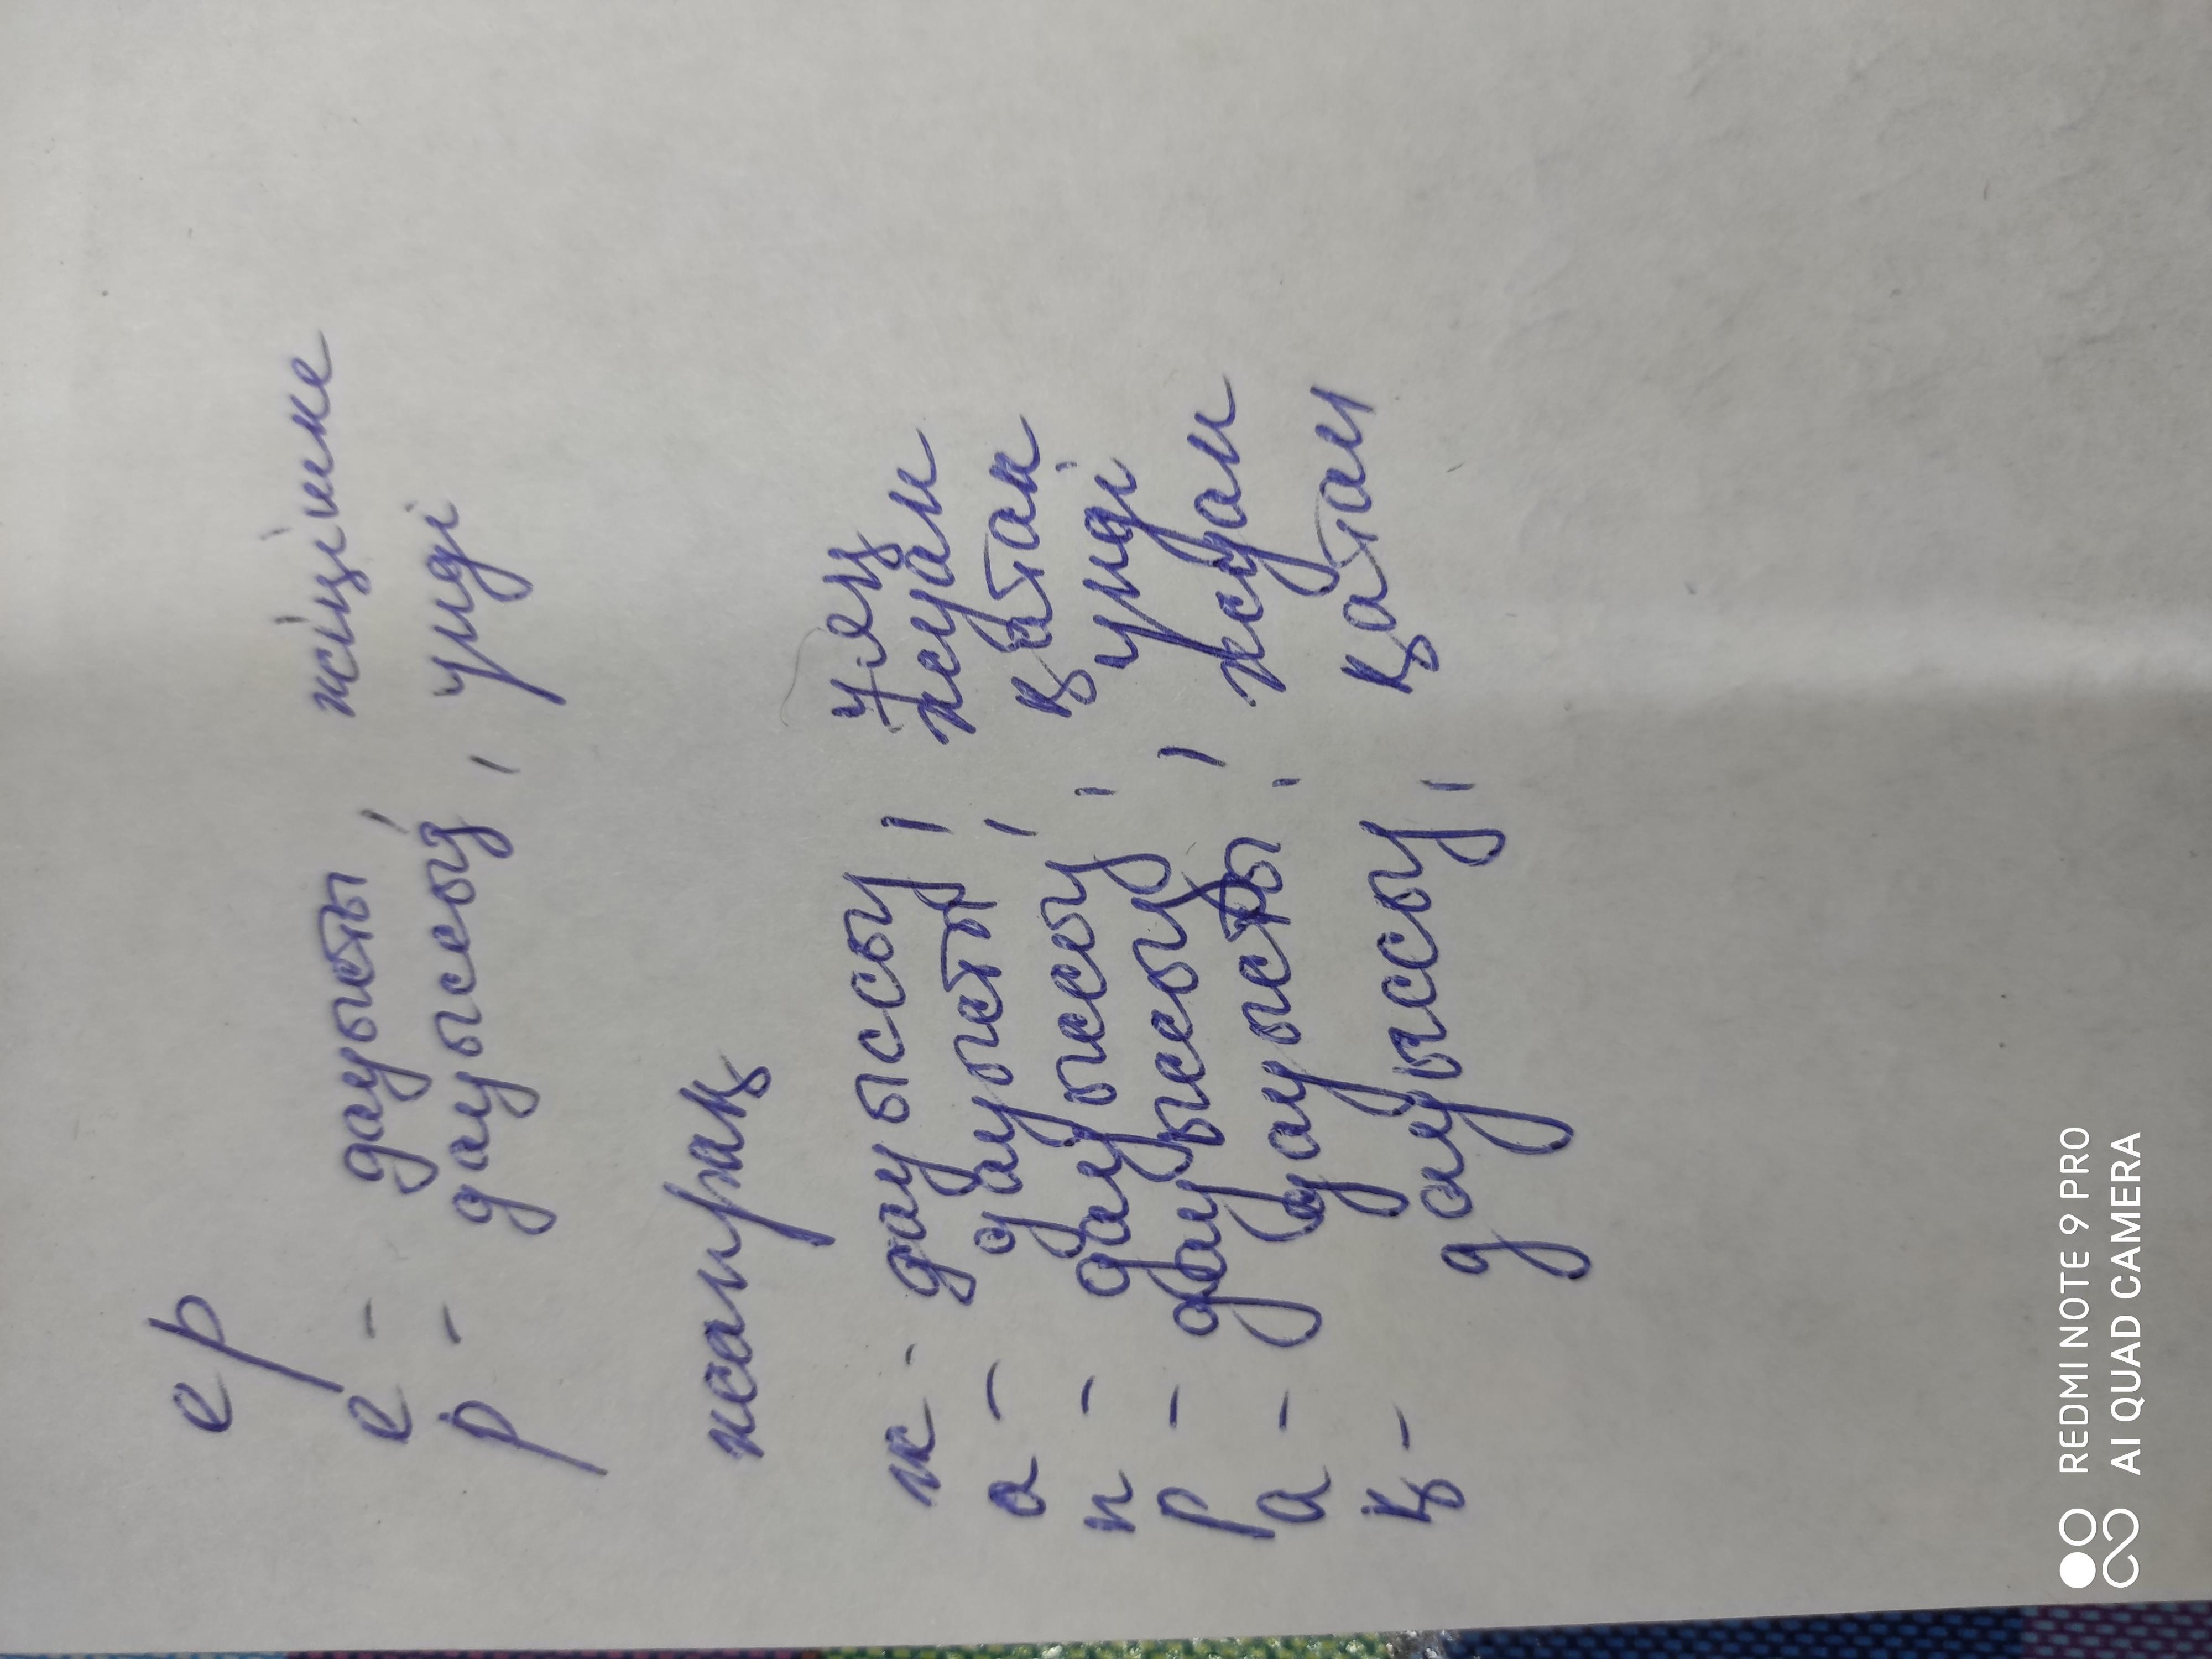 ер
е - дауысты, жіңішке
р - дауыссыз, үнді
жапырақ
ж - дауыссыз, ұяң
а - дауысты, жуан
п - дауыссыз, қатаң
р - дауыссыз, үнді
а - дауысты, жуан
қ - дауыссыз, қатаң
REDMI NOTE 9 PRO
AI QUAD CAMERA